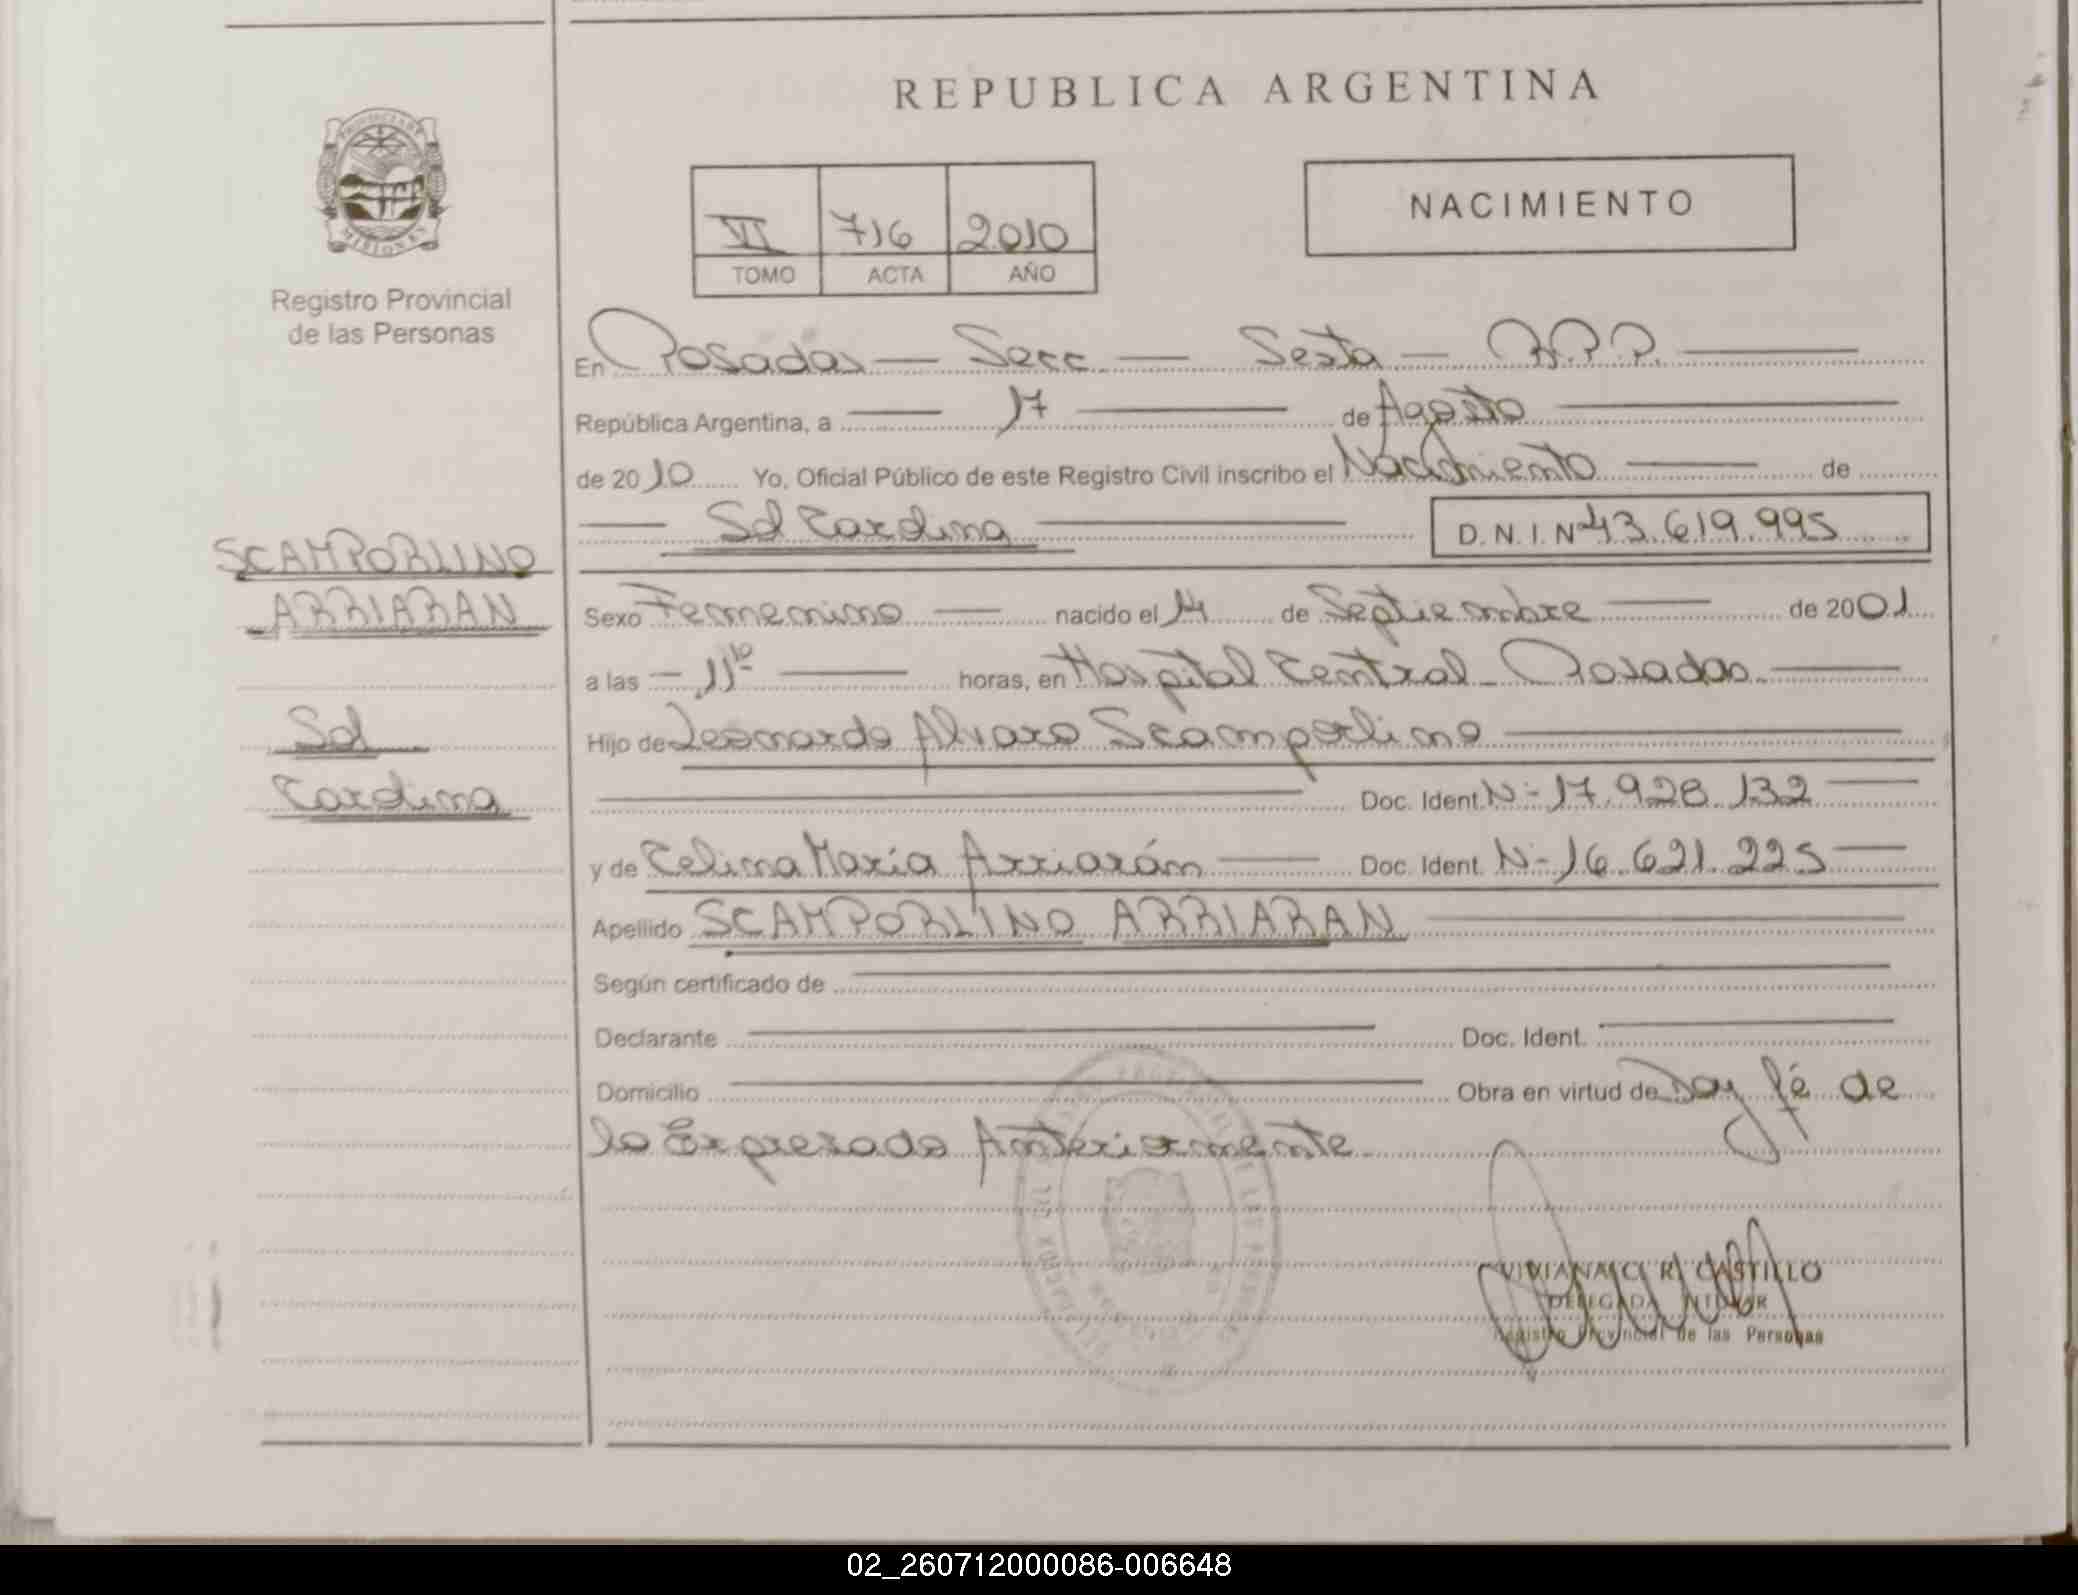 REPUBLICA ARGENTINA
PROVINCIA DE
MISIONES
Registro Provincial
de las Personas
VI 716 2010
TOMO ACTA AÑO
NACIMIENTO
En Posadas — Secc — Sexta — R.P.P. —
República Argentina, a — 17 — de Agosto —
de 2010 Yo, Oficial Público de este Registro Civil inscribo el Nacimiento — de
— Sol Carolina — D.N.I. Nº 43.619.995
SCAMPORLINO
ARRIARAN
Sol
Carolina
Sexo Femenino — nacido el 14 de Septiembre — de 2001
a las — 11 10 — horas, en Hospital Central - Posadas. —
Hijo de Leonardo Alvaro Scamporlino —
— Doc. Ident. Nº 17.928.132 —
y de Celina María Arriarán — Doc. Ident. Nº 16.621.225 —
Apellido SCAMPORLINO ARRIARAN —
Según certificado de —
Declarante — Doc. Ident. —
Domicilio — Obra en virtud de Doy fé de
lo Expresado Anteriormente
VIVIANA C. R. CASTILLO
DELEGADA TITULAR
Registro Provincial de las Personas
02_260712000086-006648